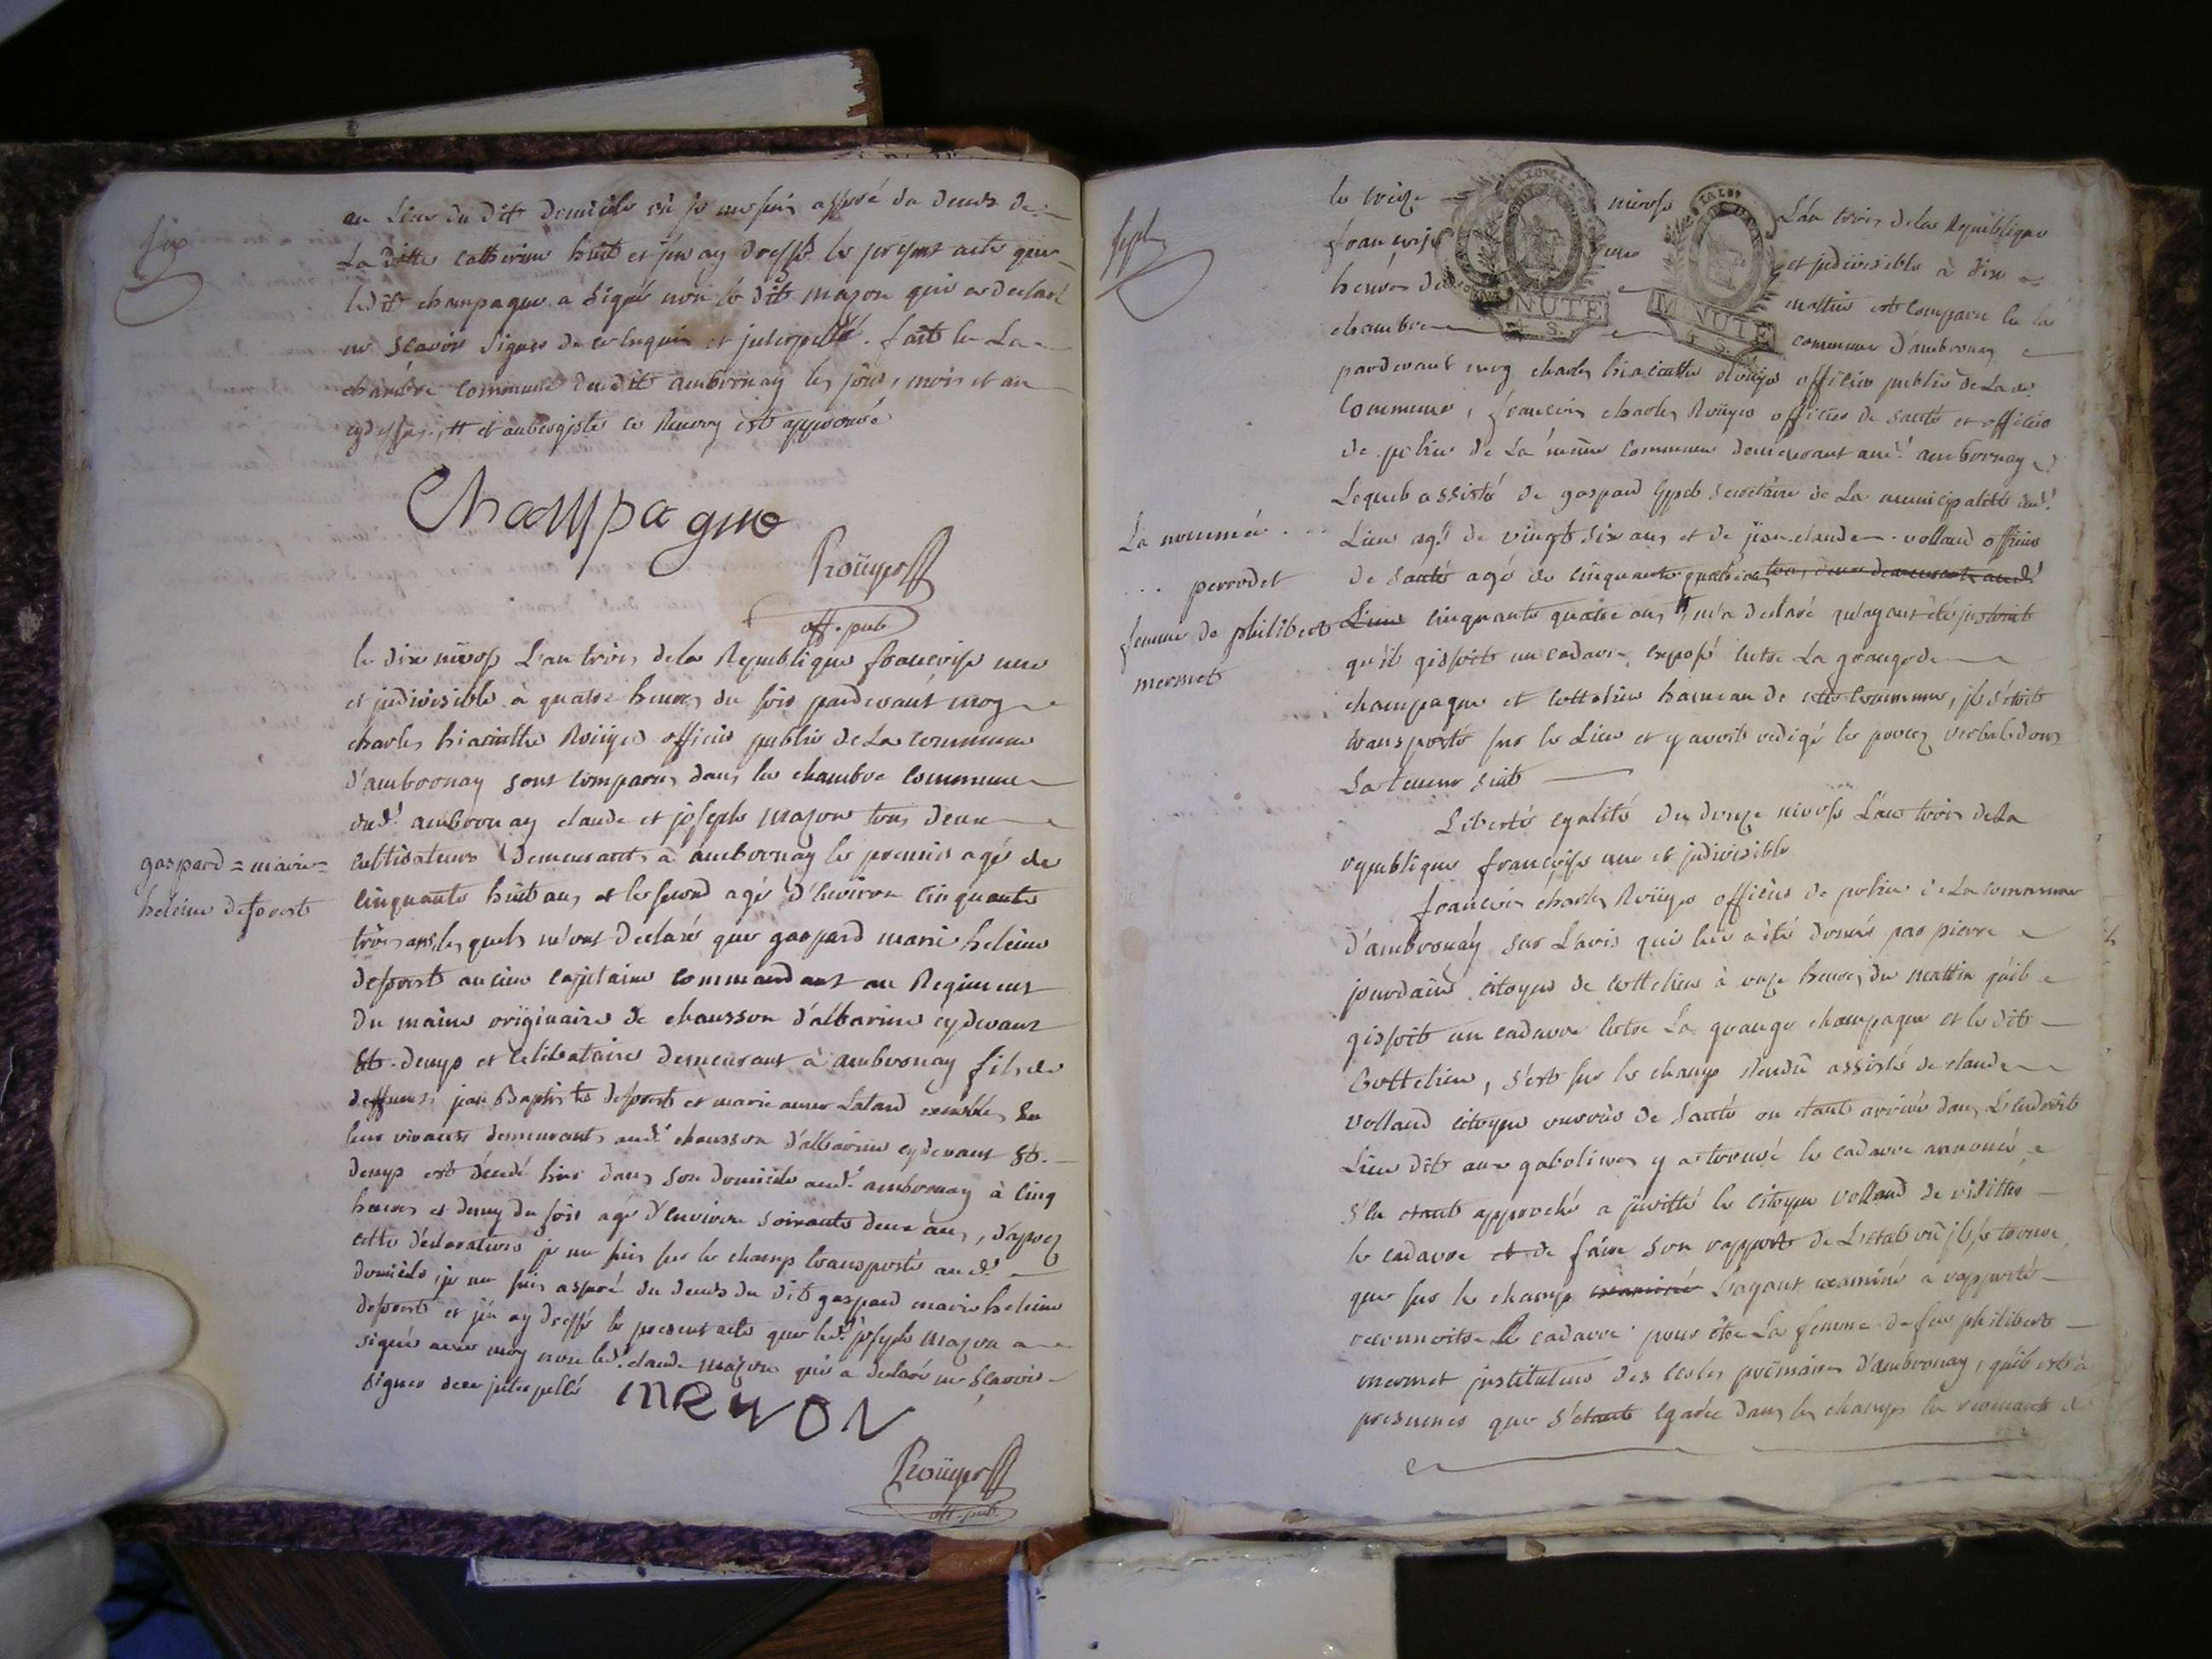 six
au lieu du dit domicile où je me suis assuré du decès de
La ditte catherine huit et j'en ay dressé le present acte que
ledit champagne a signé non le dit mazon qui a declaré
ne scavoir signer de ce enquis et interpellé. fait en La
chambre commune dudit ambronay les jour, mois et an
cydessus, # et aubergiste ce renvoy est approuvé
Champagne
Roüyer
off. pub
le dix nivose L'an trois de la Republique francoise une
et indivisible à quatre heures du soir pardevant moy
charles hiacinthe Roüyer officier public de La commune
d'ambronay sont comparus dans la chambre commune
dud.t ambronay claude et joseph mazon tous deux
gaspard = marie =
heleine deforest
cultivateurs demeurants à ambronay le premier agé de
cinquante huit ans et le second agé d'environ cinquante
trois ans lesquels m'ont declaré que gaspard marie heleine
deforest ancien capitaine commandant au Regiment
du maine originaire de chausson d'albarine cydevant
St. denys et celibataire demeurant à ambronay fils de
deffunts jean Baptiste deforest et marie anne Latard ensembles de
leur vivants demeurants aud.t chausson d'albarine cydevant St.
denys est décédé hier dans son domicile aud.t ambronay à cinq
heures et demy du soir agé d'environ soixante deux ans, d'aprez
cette déclaration je me suis sur le champ transporté aud.t
domicile, je me suis assuré du decès du dit gaspard marie heleine
deforest et j'en ay dressé le present acte que led.t joseph mazon a
signé avec moy non led.t claude mazon qui a declaré ne scavoir
signer de ce interpellé
Roüyer
off. pub.
sept
le treize nivose L'an trois de la Republique
francoise une et indivisible à dix
heures du mattin est comparu en la
chambre commune d'ambronay
MINUTE
MINUTE
pardevant moy charles hiacinthe Roüyer officier public de La
commune, francois charles Roüyer officier de santé et officier
de police de La même commune demeurant aud.t ambronay
Lequel assisté de gaspard secretaire de La municipalité dud.t
La nommée . . .
. . . perrodet
femme de philibert
mermet
Lieu agé de vingt six ans et de jean claude vollaud officier
de santé agé de cinquante quatre ans tous deux demeurants aud.t
Lieu cinquante quatre ans #, m'a declaré qu'ayant été instruit
qu'il gissoit un cadavre exposé entre La grange de
champagne et cottelieu hameau de cette commune, il s'etoit
transporté sur le Lieu et y avoit redigé le procez verbal dont
La teneur suit
Liberté egalité du douze nivose L'an trois de La
republique francoise une et indivisible
francois charles Roüyer officier de police de La commune
d'ambronay sur L'avis qui lui a été donné par pierre
jourdain citoyen de cottelieu à onze heures du mattin qu'il
gissoit un cadavre entre La grange champagne et le dit
Cottelieu, s'est sur le champ rendu assisté de claude
vollaud citoyen officier de santé ou etant arrivé dans L'endroit
Lieu dit aux gabolines y a trouvé le cadavre annoncé
s'en etant approché a invitté le citoyen vollaud de visitter
le cadavre et de faire son rapport de L'etat où il se trouve,
que sur le champ examiné L'ayant examiné a rapporté
reconnoitre le cadavre pour être La femme de feu philibert
mermet instituteur des ecoles primaires d'ambronay, qu'il est à
presumer que s'etant egarée dans les champs en revenant d